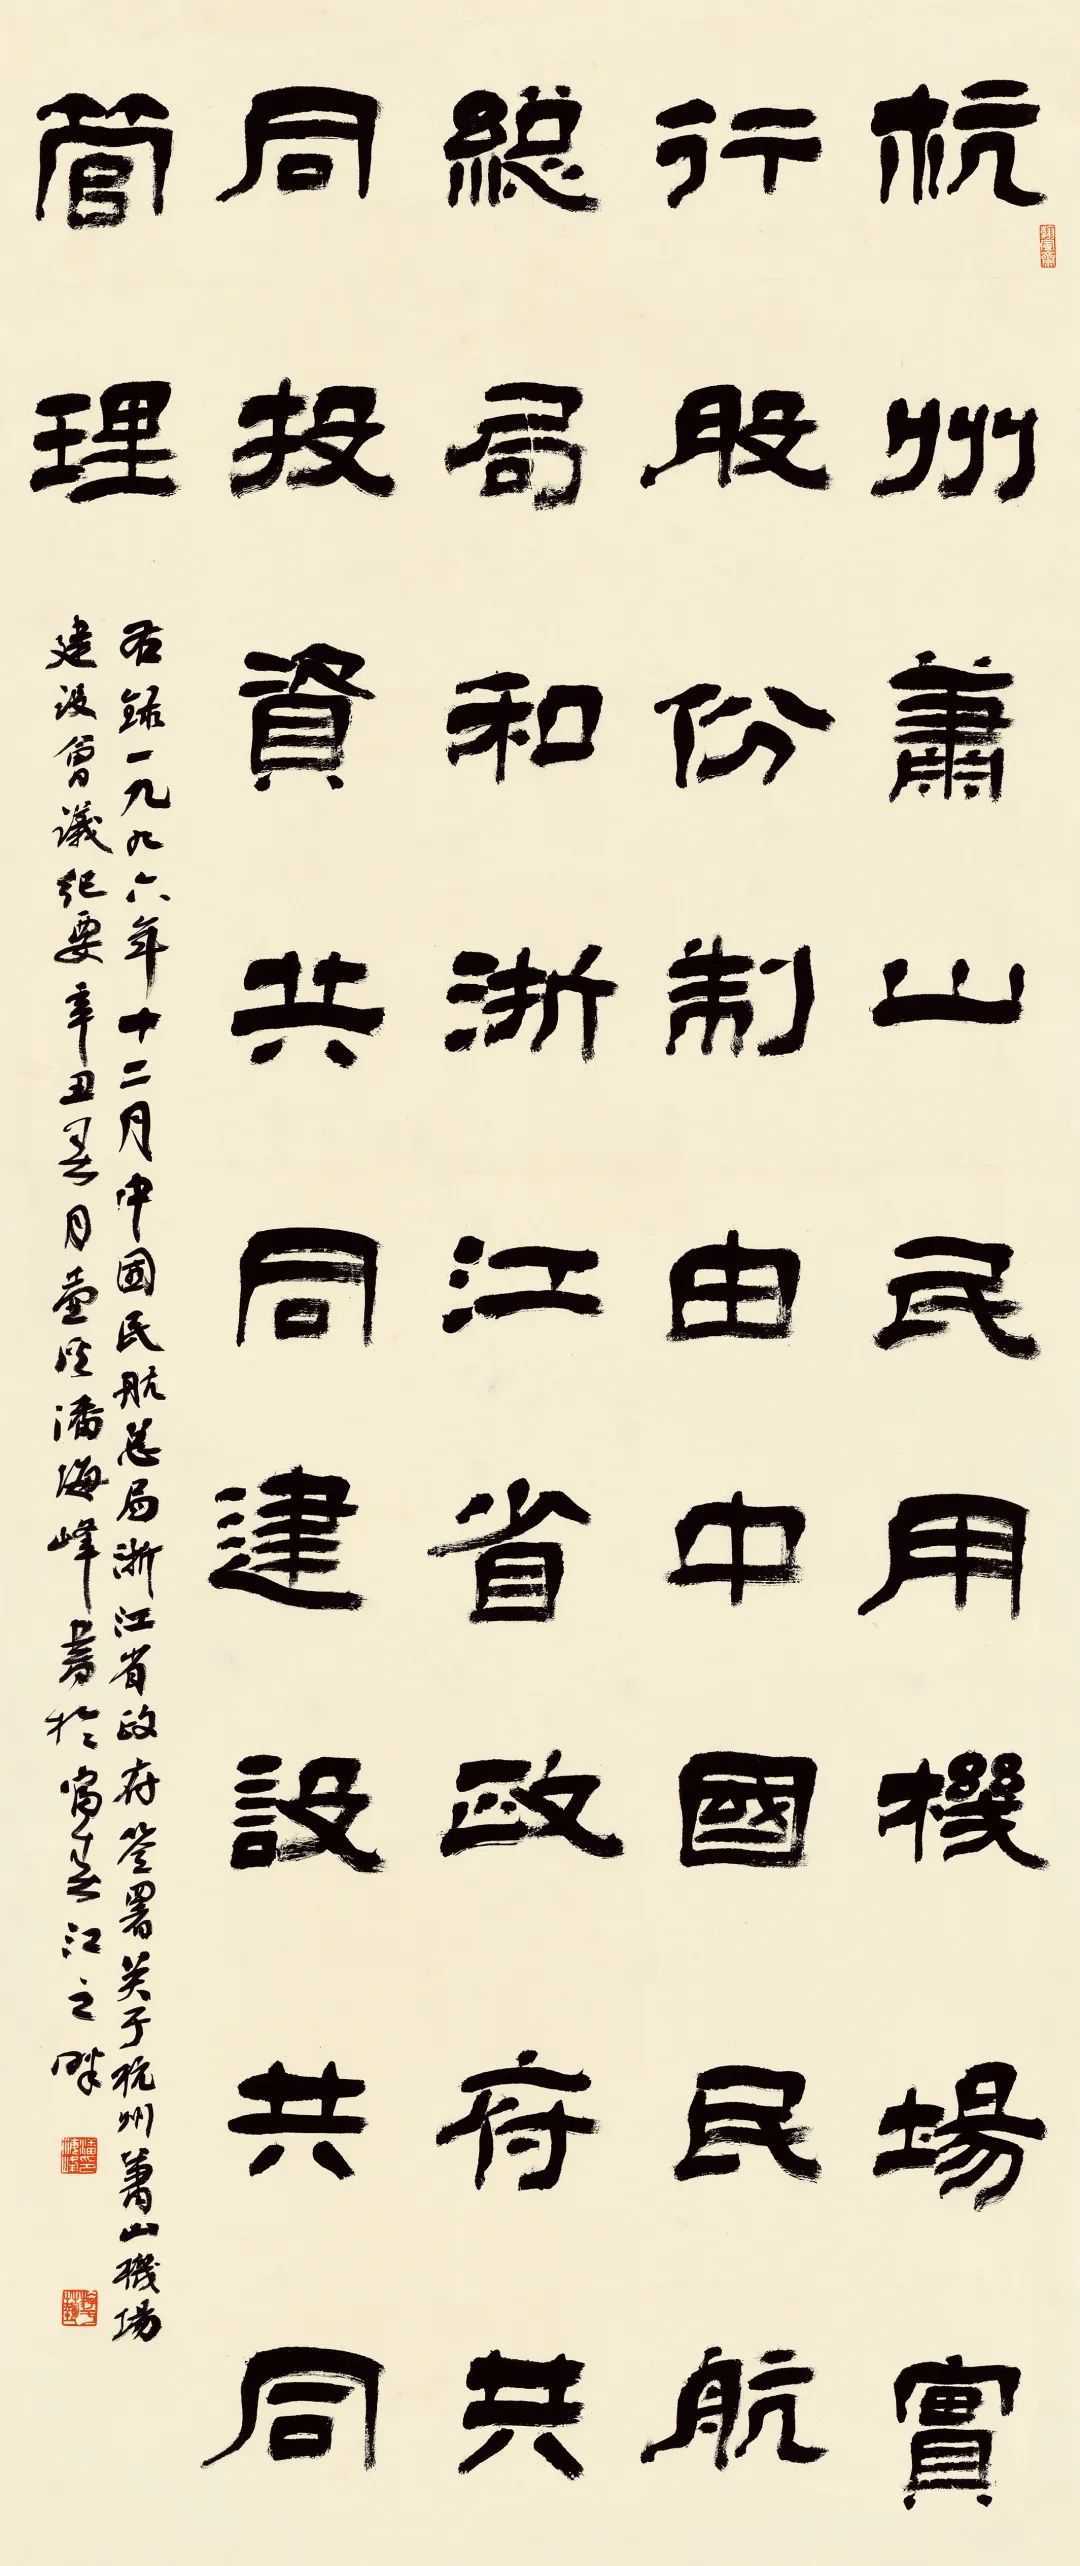 杭州蕭山民用機場實
行股份制由中國民航
總局和浙江省政府共
同投資共同建設共同
管理
右錄一九九六年十二月中國民航总局浙江省政府签署关于杭州萧山機场
建设會議纪要辛丑春月壶溪潘海峰書於富春江之畔